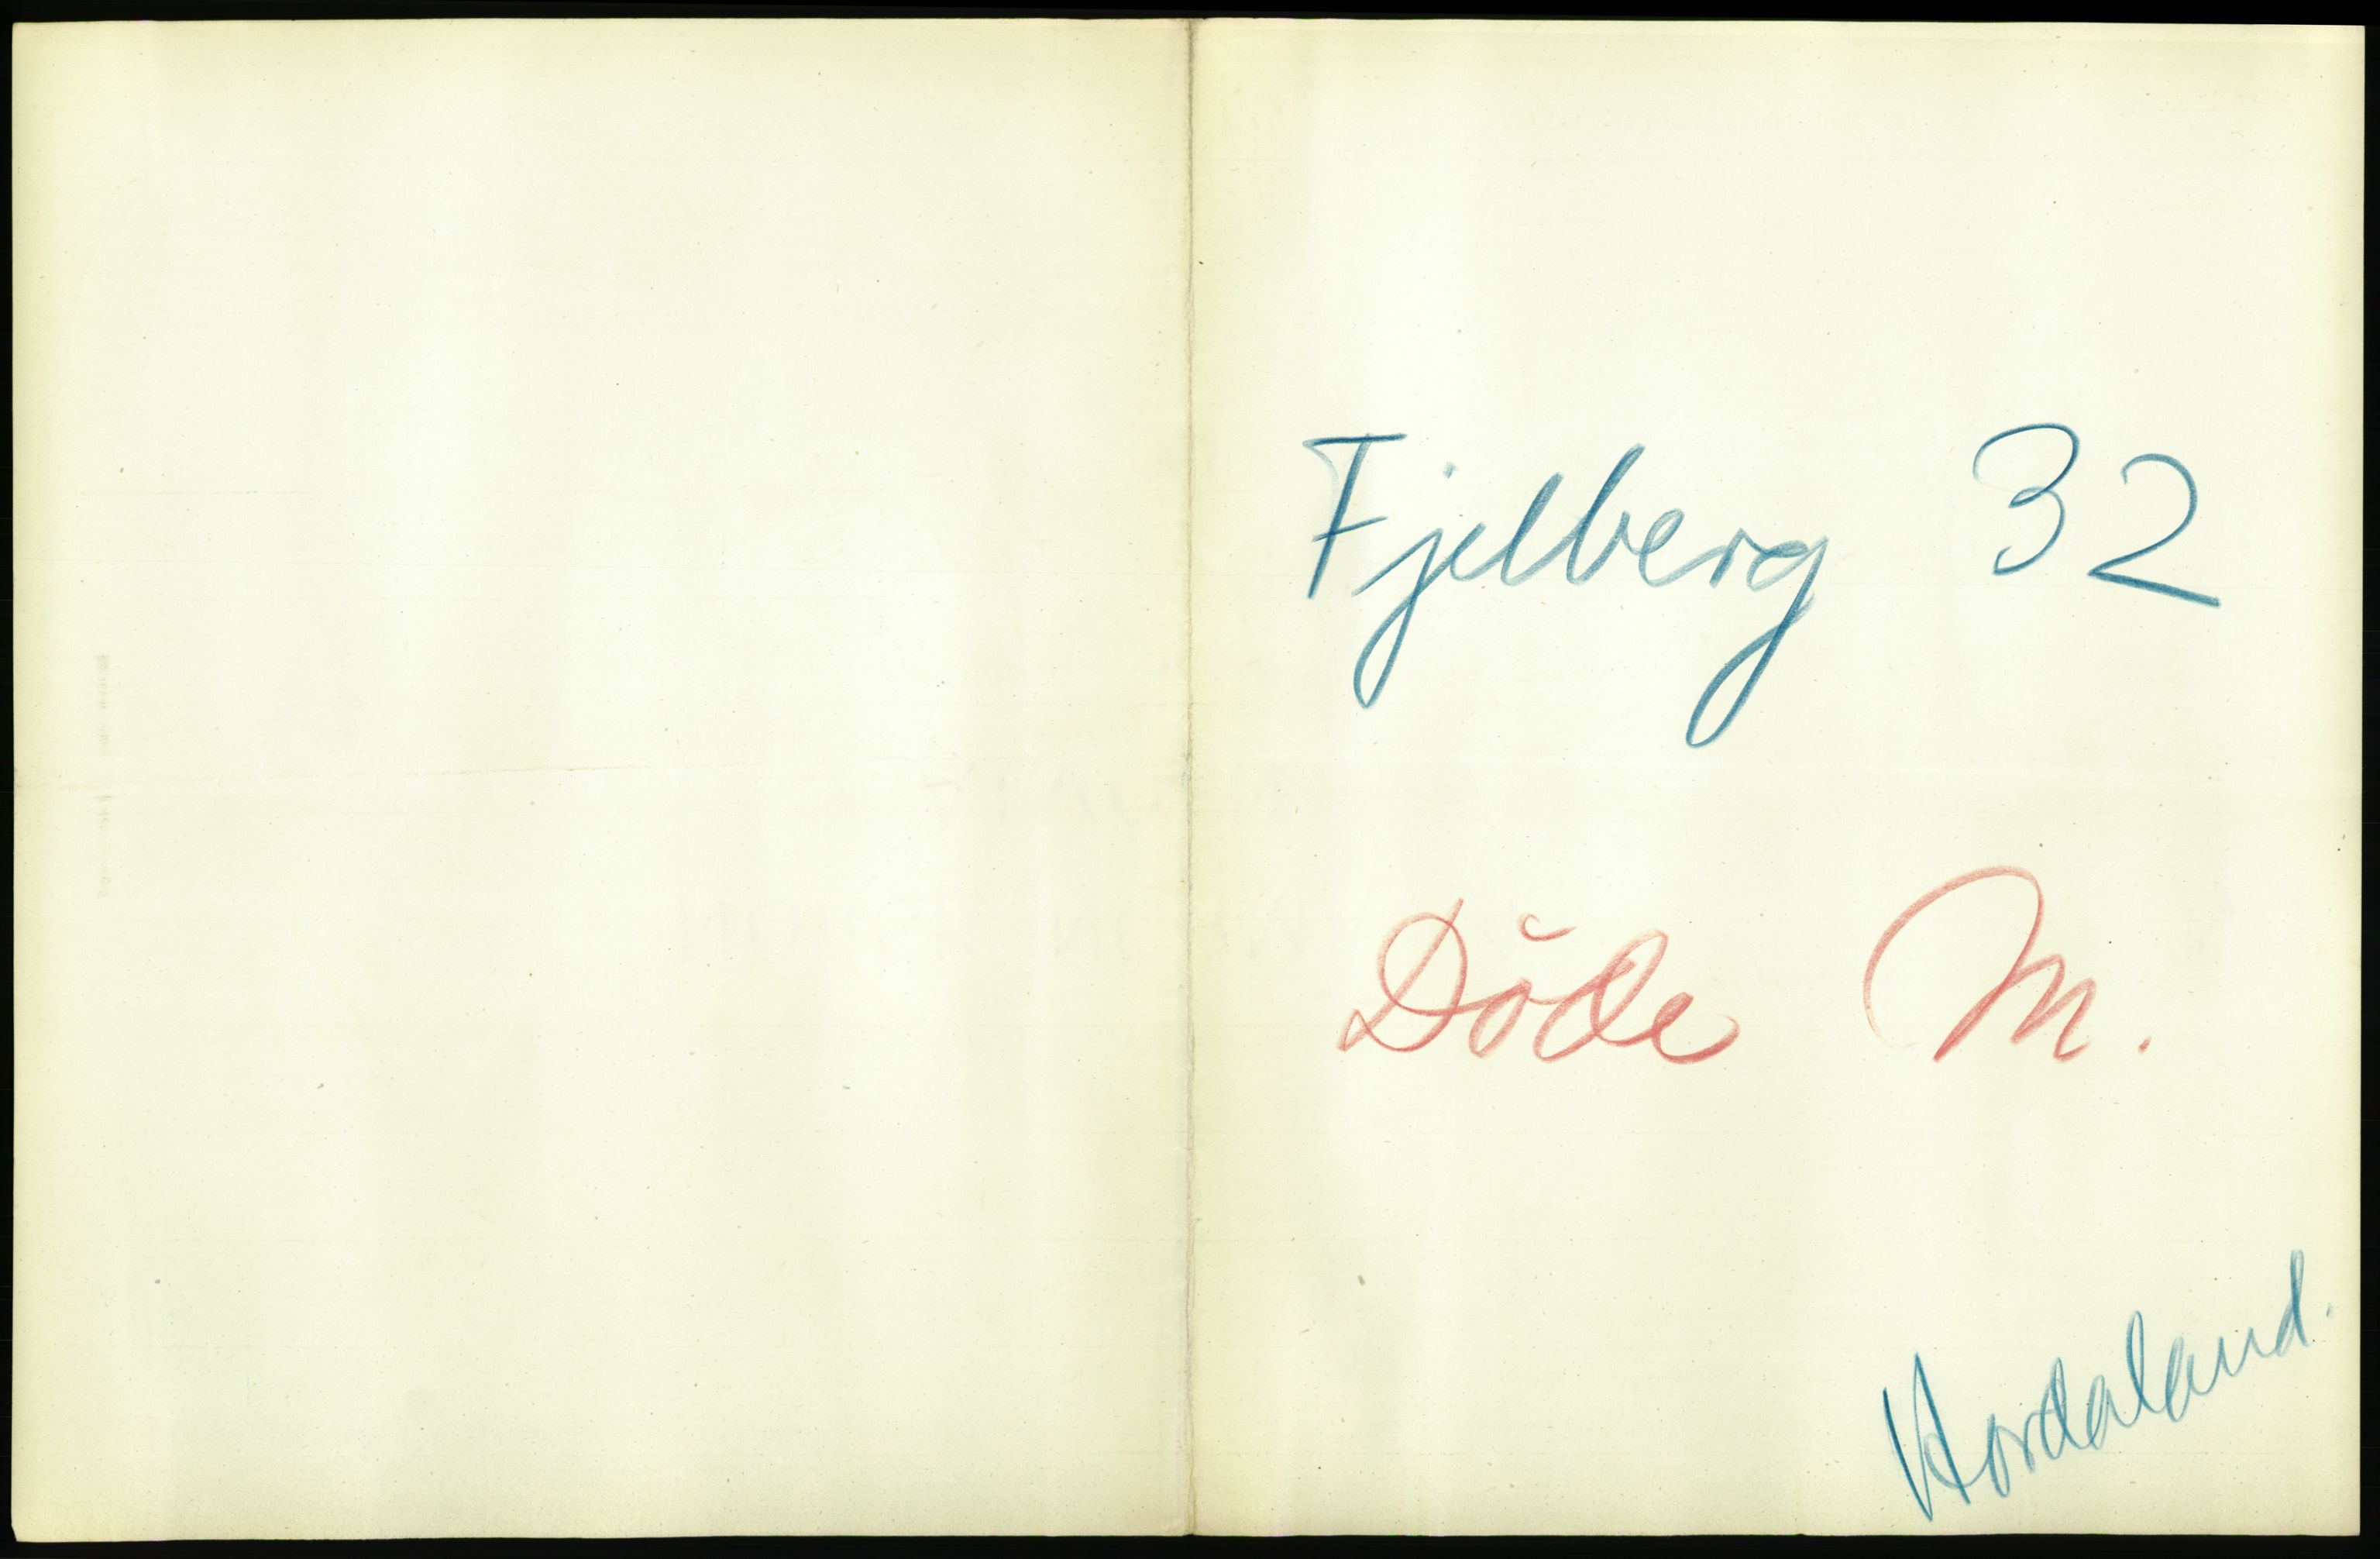 Fjelberg 32
Döde M.
Hordaland.